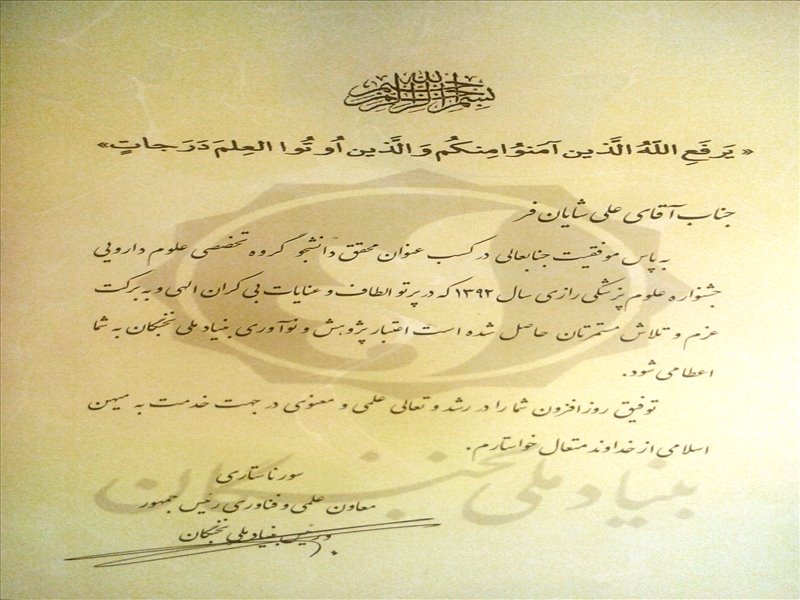 بسم الله الرحمن الرحیم
« یَرفَعِ اللهُ الَّذین آمَنوُا مِنکُم وَ الَّذین اُوتُوا العِلمَ دَرَجاتٍ»
جناب آقای علی شایان فر
به پاس موفقیت جنابعالی در کسب عنوان محقق دانشجو گروه تخصصی علوم دارویی
جشنواره علوم پزشکی رازی سال ۱۳۹۲ که در پرتو الطاف و عنایات بی کران الهی و به برکت
عزم و تلاش مستمرتان حاصل شده است اعتبار پژوهش و نوآوری بنیاد ملی نخبگان به شما
اعطا می شود.
توفیق روز افزون شما را در رشد و تعالی علمی و معنوی در جهت خدمت به میهن
اسلامی از خداوند متعال خواستارم.
سورنا ستاری
معاون علمی و فناوری رئیس جمهور
و رئیس بنیاد ملی نخبگان
بنیاد ملی نخبگان